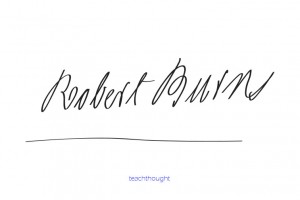 Robert Burns
teachthought